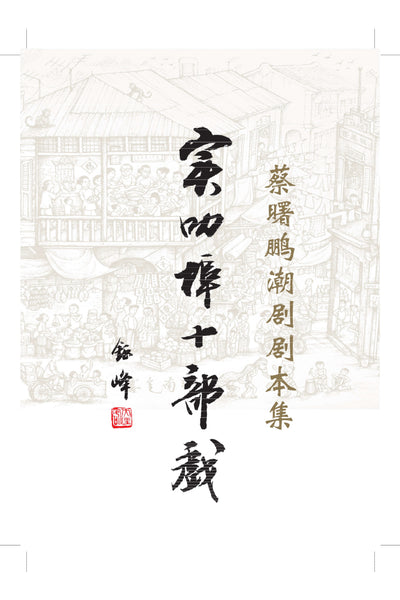 蔡曙鹏潮剧剧本集
实叻埠十部戲
峰